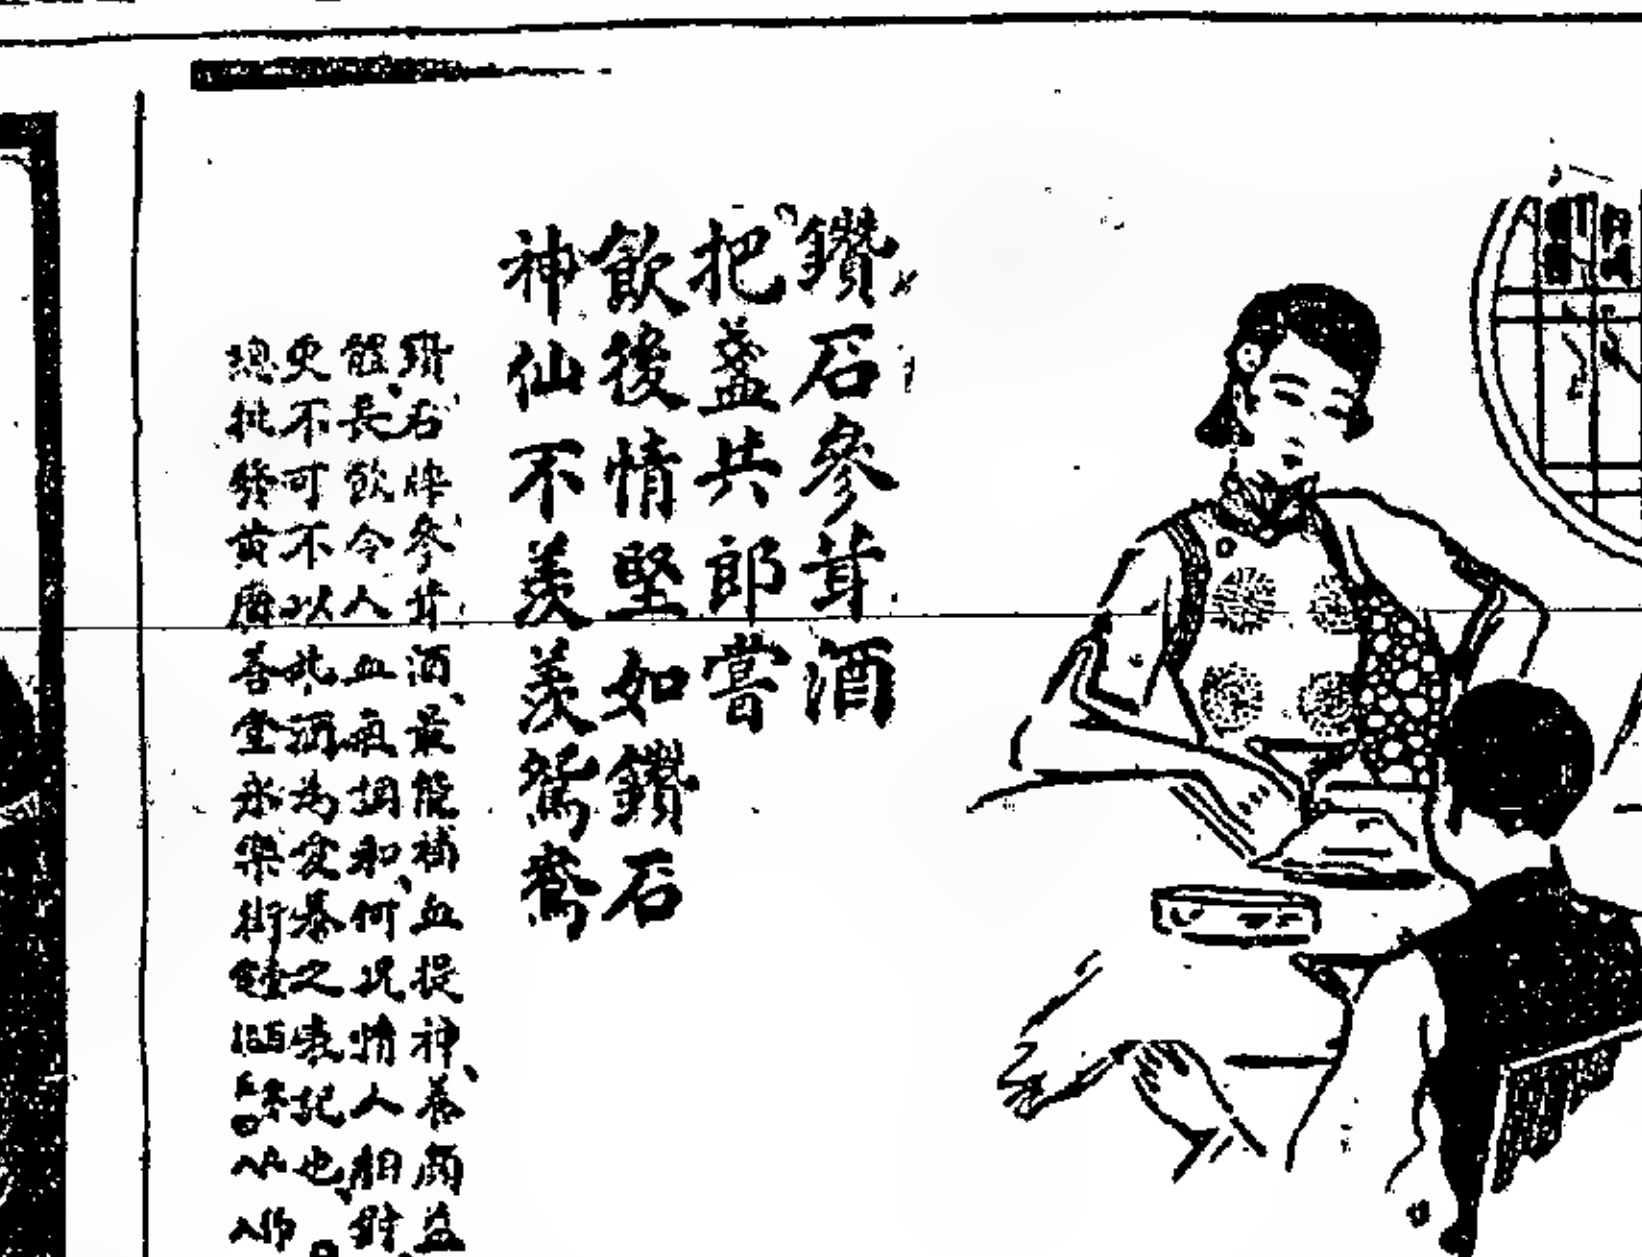 鑽石參茸酒
把盞共郎嘗
飲後情堅如鑽石
神仙不羨羨鴛鴦
鑽石牌參茸酒、最能補血提神、養顏益
體、長飲令人血氣調和、何况情人相對、
更不可不以此酒為愛慕之表記也、
總批發黃廣善堂永樂街